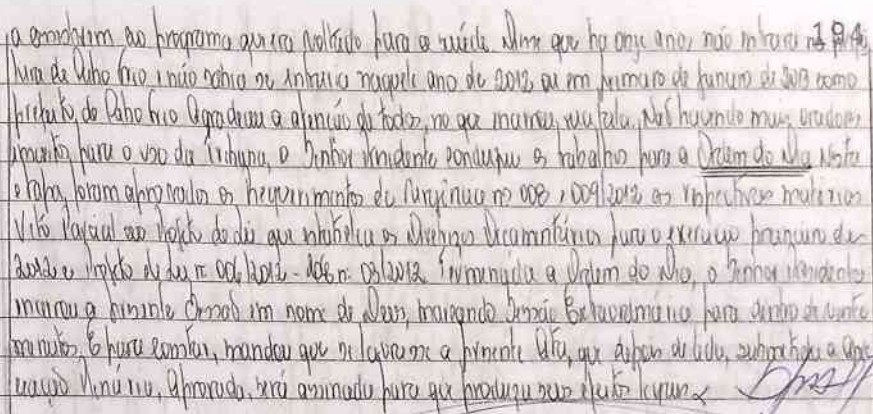 a ao programa que era voltado para a saúde. Disse que há onze anos não entrava na 194
tura de Cabo Frio e não sabia se entraria naquele ano de 2012 ou em primeiro de janeiro de 2013 como
prefeito de Cabo Frio. Agradeceu a atenção de todos, no que encerrou sua fala. Não havendo mais oradores
inscritos para o uso da Tribuna, o Senhor Presidente conduziu os trabalhos para a Ordem do Dia. Nesta
etapa, foram aprovados os Requerimentos de Urgência nº 008 e 009/2012 as respectivas matérias
Veto Parcial ao Projeto de Lei que estabelece as Diretrizes Orçamentárias para o exercício financeiro de
2012 e Projeto de Lei nº 006/2012 - nº 03/2012. Terminada a Ordem do Dia, o Senhor Presidente
encerrou a presente Sessão em nome de Deus, marcando Sessão Extraordinária para dentro de vinte
minutos. E para constar, mandou que se lavrasse a presente Ata, que depois de lida, submetida a apre
ciação Plenária, aprovada, será assinada para que produza seus efeitos legais.